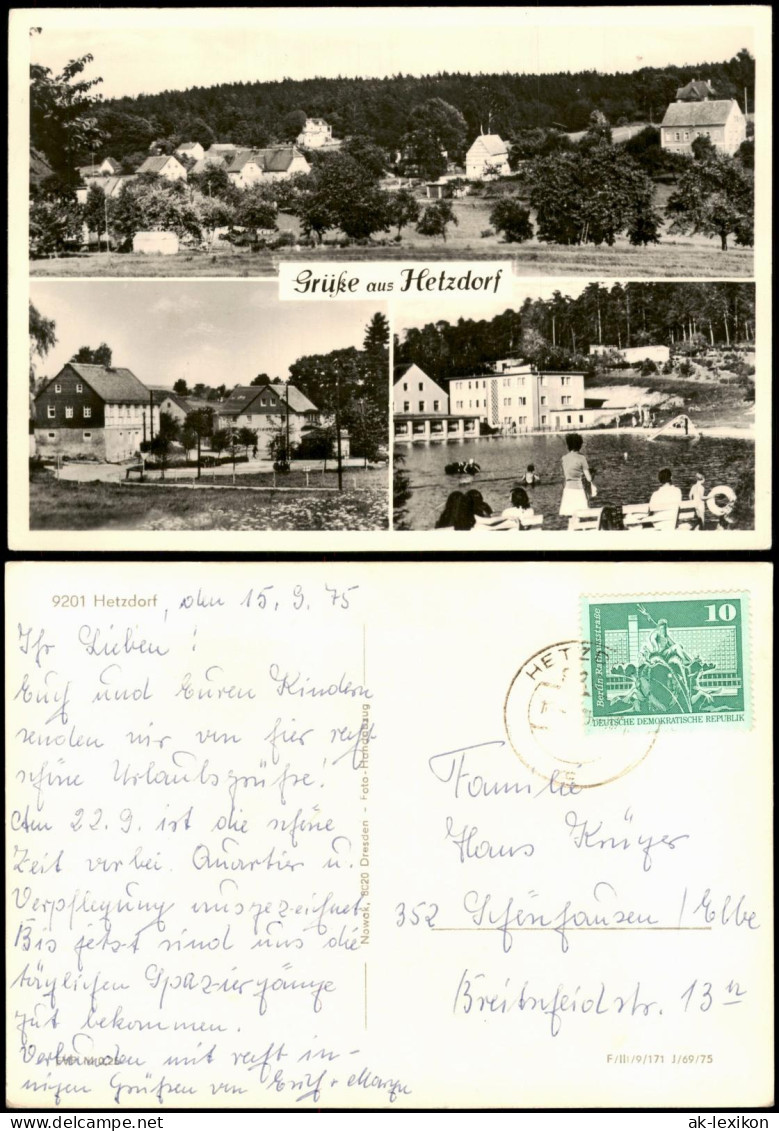 Grüße aus Hetzdorf
9201 Hetzdorf, den 15. 9. 75
Ihr Lieben!
Euch und Euren Kindern
senden wir von hier recht
schöne Urlaubsgrüße!
Am 22. 9. ist die schöne
Zeit vorbei. Quartier u.
Verpflegung ausgezeichnet.
Bis jetzt sind uns die
täglichen Spaziergänge
gut bekommen.
Verbunden mit recht in-
nigen Grüßen von Erich +
Nowak, 8020 Dresden - Foto-Handabzug
10
Berlin Rathausstraße
DEUTSCHE DEMOKRATISCHE REPUBLIK
Familie
Hans Krüger
352 Schönhausen/Elbe
Breitscheidstr. 13
F/III/9/171 J/69/75
ak-lexikon